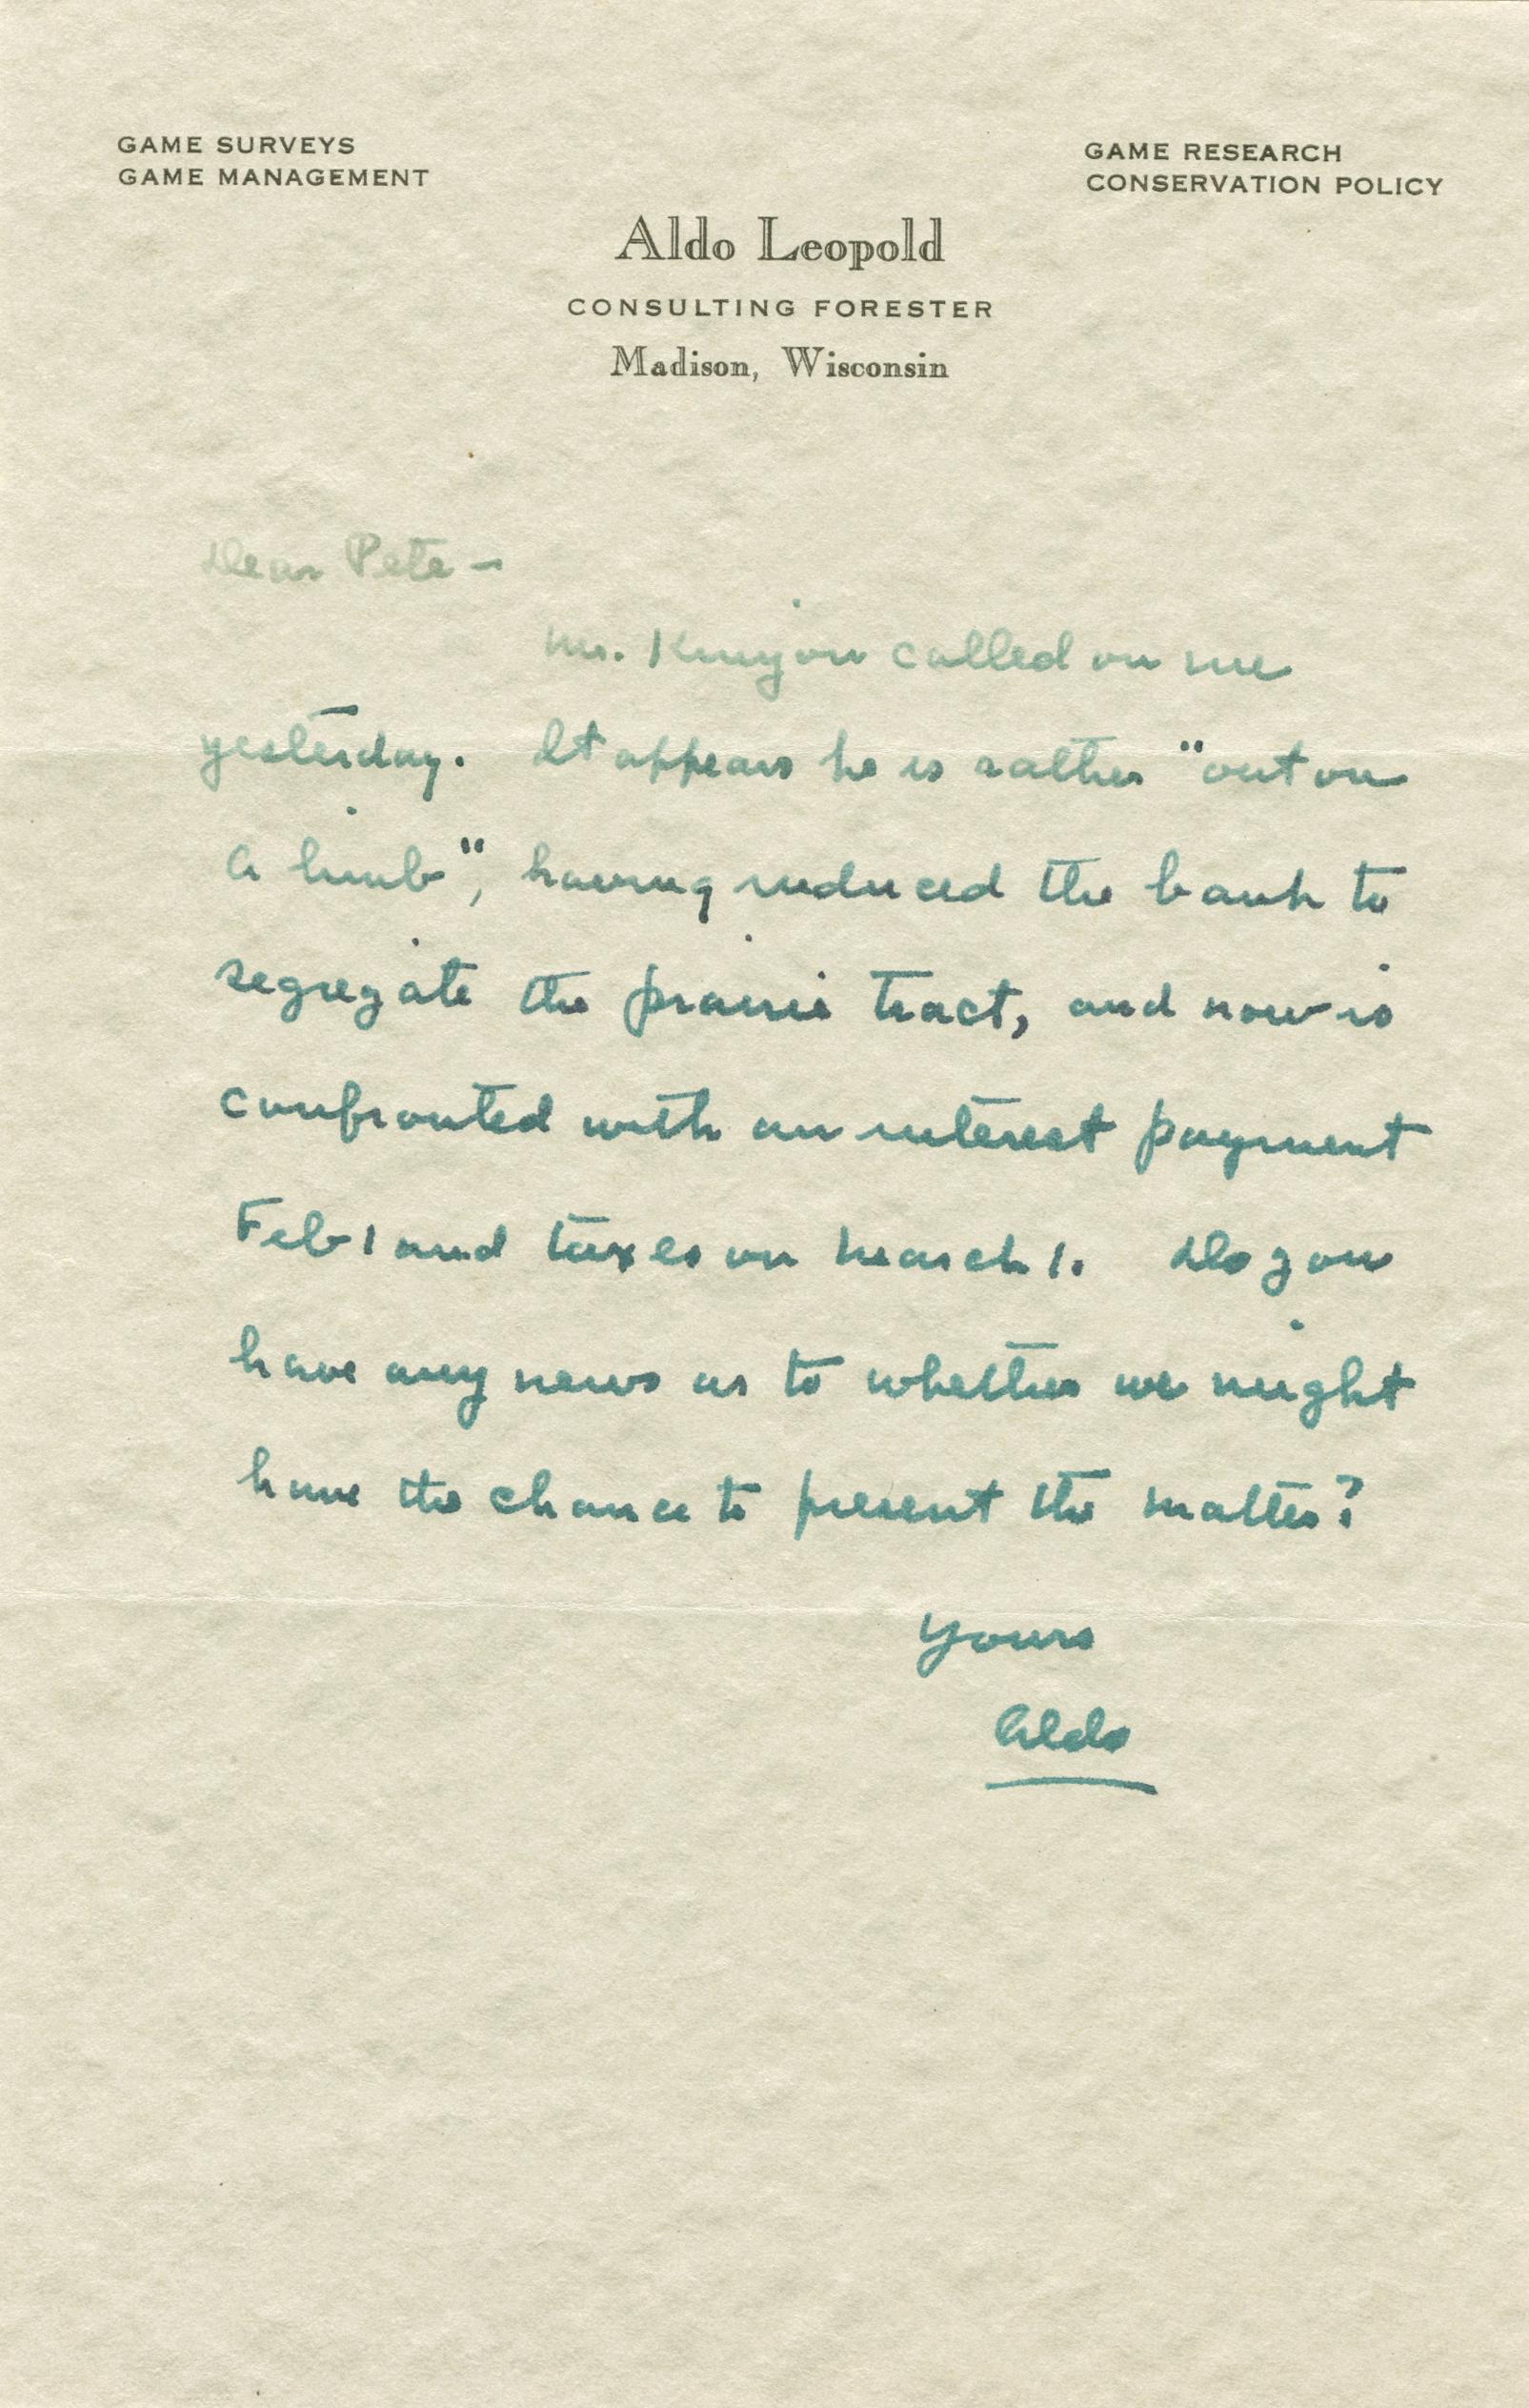 GAME SURVEYS
GAME MANAGEMENT
GAME RESEARCH
CONSERVATION POLICY
Aldo Leopold
CONSULTING FORESTER
Madison, Wisconsin
Dear Pete —
Mr. called on me
yesterday. It appears he is rather "out on
a limb", having induced the bank to
segregate the prairie tract, and now is
confronted with an interest payment
Feb 1 and taxes on March 1. Do you
have any news as to whether we might
have the chance to present the matter?
Yours
Aldo